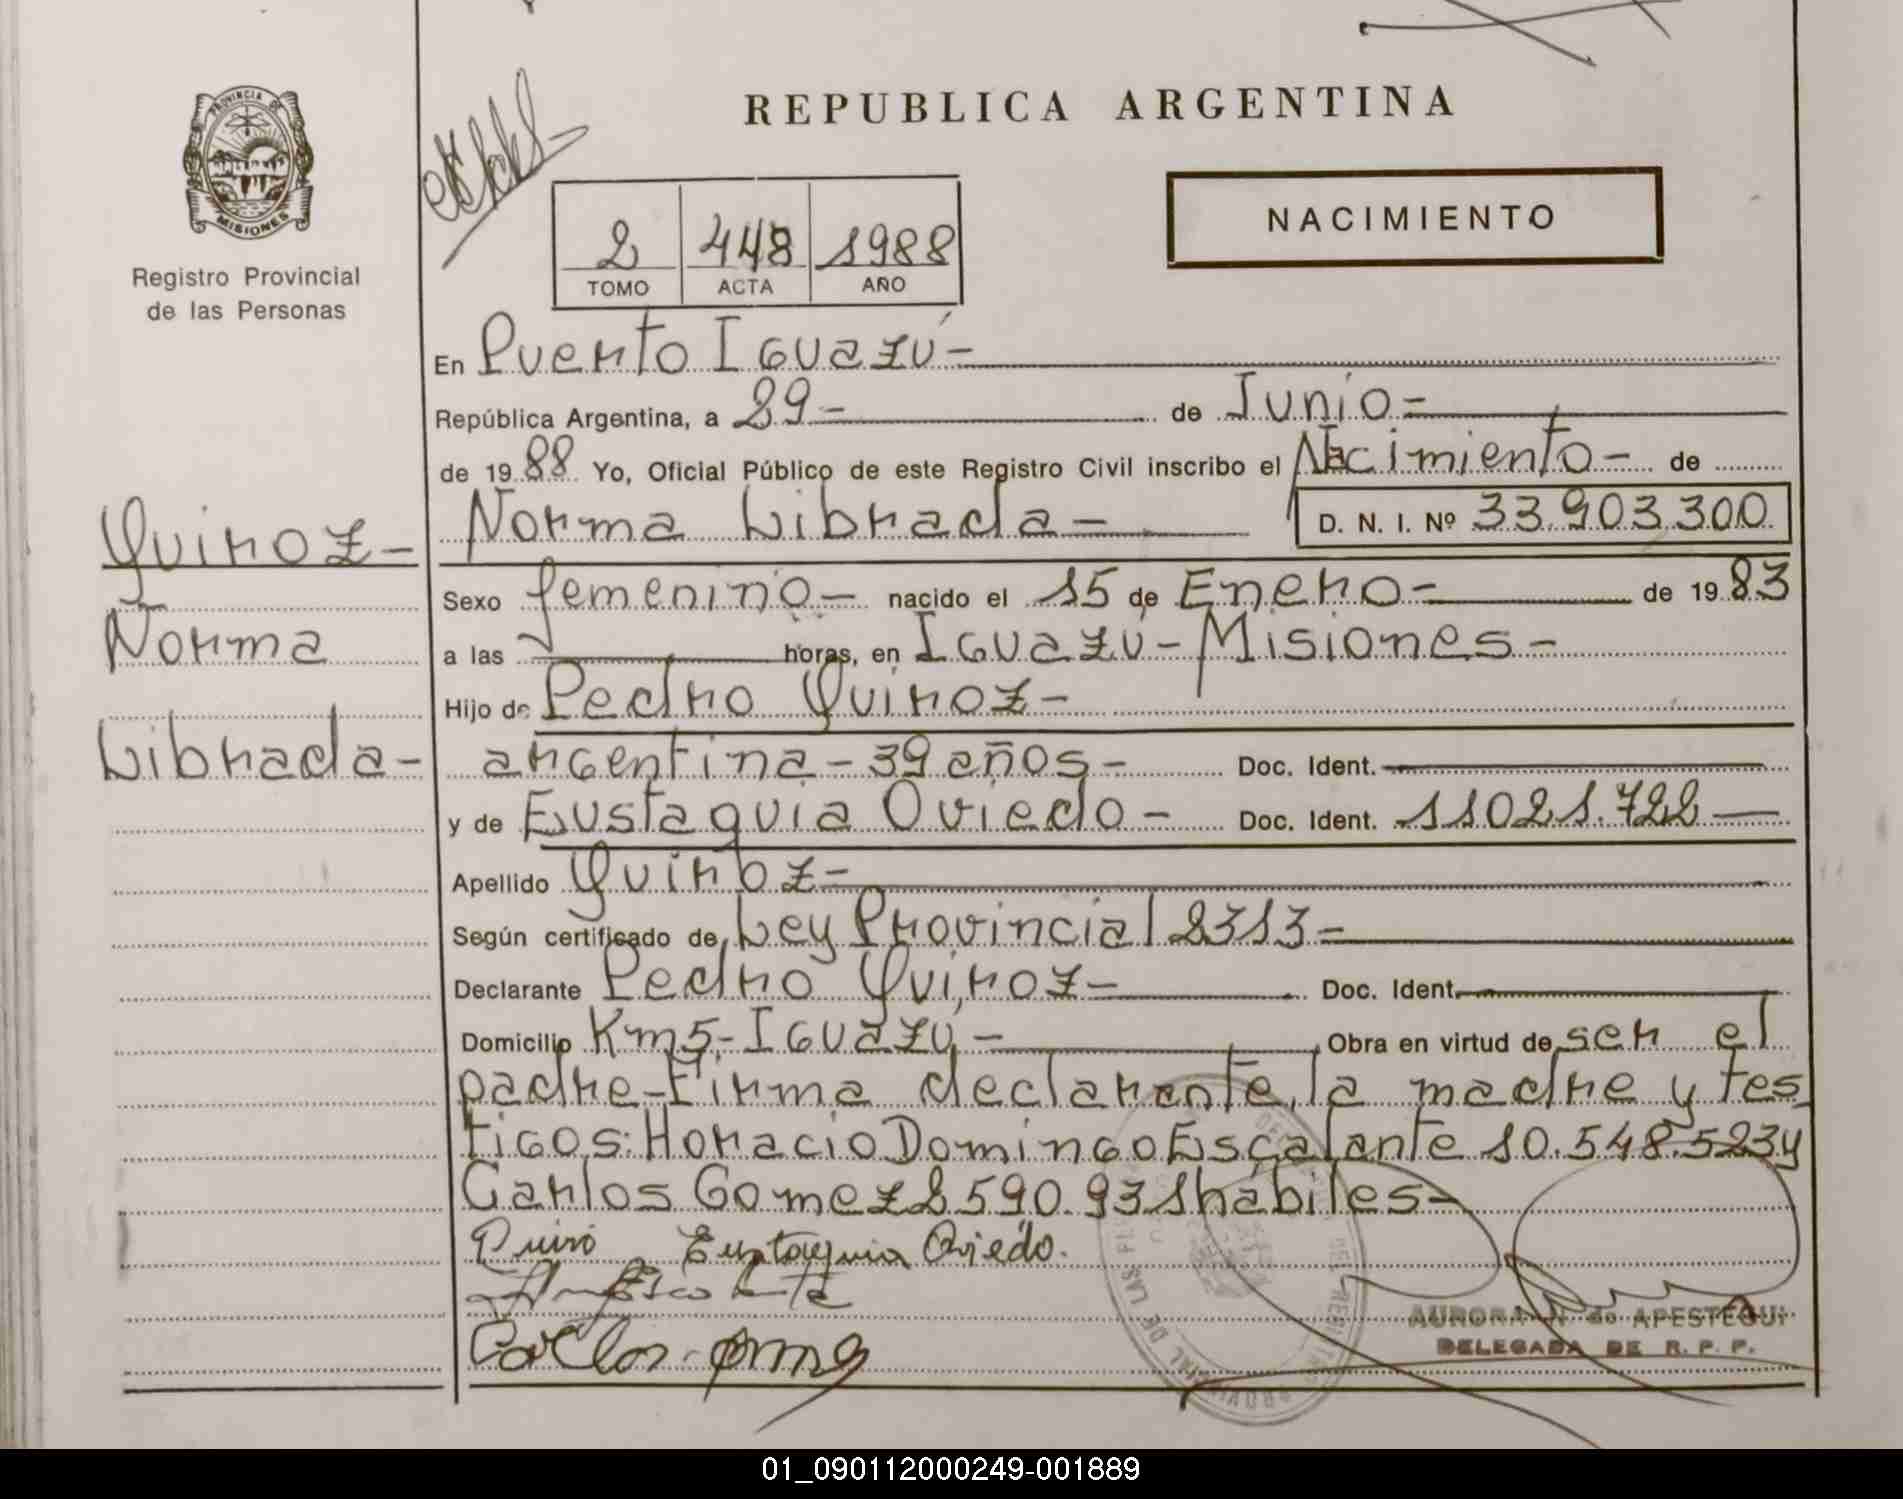 REPUBLICA ARGENTINA
PROVINCIA DE
MISIONES
Registro Provincial
de las Personas
2 448 1988
TOMO ACTA AÑO
NACIMIENTO
En Puerto Iguazú-
República Argentina, a 29- de Junio-
de 1988 Yo, Oficial Público de este Registro Civil inscribo el Nacimiento- de
Norma Librada- D. N. I. Nº 33.903.300
Quiroz-
Norma
Librada-
Sexo femenino- nacido el 15 de Enero- de 1983
a las horas, en Iguazú-Misiones-
Hijo de Pedro Quiroz-
argentina-39 años- Doc. Ident.
y de Eustaquia Oviedo- Doc. Ident. 11021.722
Apellido Quiroz-
Según certificado de Ley Provincial 2313-
Declarante Pedro Quiroz- Doc. Ident.
Domicilio Km5-Iguazú- Obra en virtud de ser el
padre-Firma declarante, la madre y tes
tigos: Horacio Domingo Escalante 10.548.523 y
Carlos Gomez 2590.931 habiles-
Eustaquia Oviedo.
AURORA N de APESTEGUI
DELEGADA DE R. P. P.
01_090112000249-001889